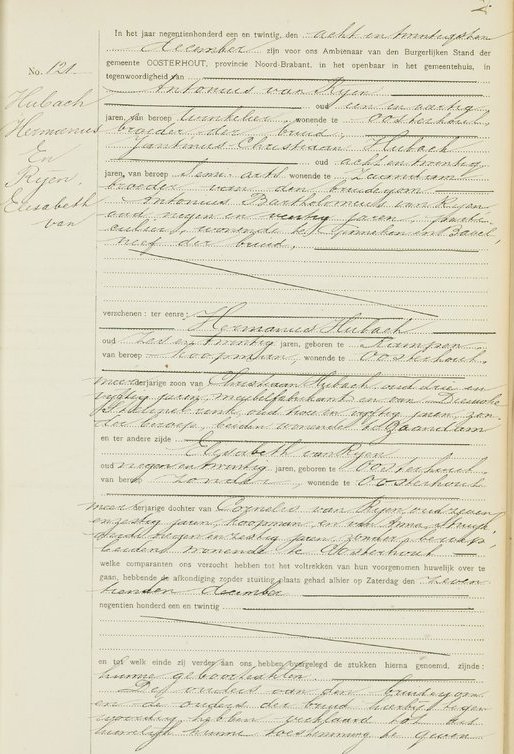 In het jaar negentienhonderd een en twintig, den acht en twintigsten
december zijn voor ons Ambtenaar van den Burgerlijken Stand der
gemeente OOSTERHOUT, provincie Noord-Brabant, in het openbaar in het gemeentehuis, in
tegenwoordigheid van
No. 121.
Antonius van Ryen
oud een en veertig
jaren, van beroep winkelier, wonende te Oosterhout,
broeder der bruid
Hubach
Hermanus
En
Ryen,
Elisabeth
van
Christiaan Hubach
oud acht en twintig
jaren, van beroep arts wonende te Zaandam
broeder van den bruidegom
Antonius Bartholomeus van Ryen
oud negen en jaren,
wonende te Ginneken en Bavel,
neef der bruid,
verschenen: ter eenre:
Hermanus Hubach
oud zes en twintig jaren, geboren te Kampen
van beroep koopman, wonende te Oosterhout
meerderjarige zoon van Christiaan Hubach oud drie en
vyftig jaren, meubelfabrikant en van
oud twee en vyftig jaren, zon-
der beroep, beiden wonende te Zaandam
en ter andere zijde
Elisabeth van Ryen
oud negen en twintig jaren, geboren te Oosterhout
van beroep zonder, wonende te Oosterhout
meerderjarige dochter van Cornelis van Ryen, oud zeven
en zestig jaren, koopman, en van Anna
oud negen en zestig jaren, zonder beroep,
beiden wonende te Oosterhout
welke comparanten ons verzocht hebben tot het voltrekken van hun voorgenomen huwelijk over te
gaan, hebbende de afkondiging zonder stuiting plaats gehad alhier op Zaterdag den zeven
tienden december
negentien honderd een en twintig
en tot welk einde zij verder aan ons hebben overgelegd de stukken hierna genoemd, zijnde:
hunne geboorteakten.
De ouders van den bruidegom
en de ouders der bruid hierbij tegen
woordig hebben verklaard tot dit
huwelijk hunne toestemming te geven